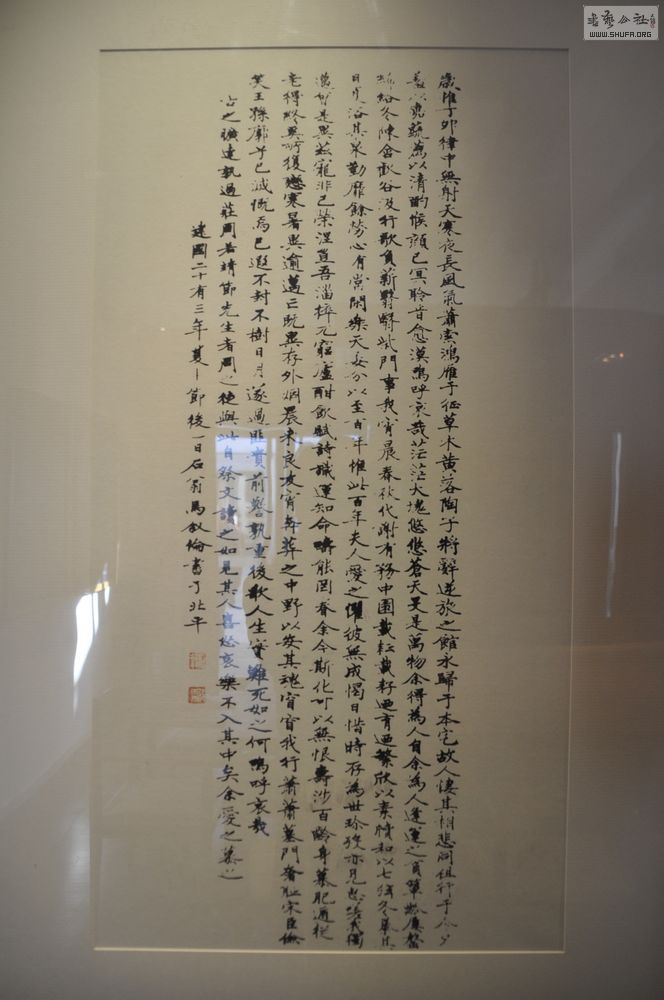 歲惟丁卯律中無射天寒夜長風氣蕭索鴻雁于征草木黃落陶子將辭逆旅之館永歸于本宅故人悽其相悲同祖行于今夕
羞以嘉蔬薦以清酌候顏已冥聆音愈漠嗚呼哀哉茫茫大塊悠悠蒼天旻是萬物余得為人自余為人逢運之貧簞瓢屢罄
絺綌冬陳含歡谷汲行歌負薪翳翳柴門事我宵晨春秋代謝有務中園載耘載籽迺育迺繁欣以素牘和以七絃冬暴其
日夏浴其泉勤靡餘勞心有常閒樂天委分以至百年惟此百年夫人愛之懼彼無成愒日惜時存為世珍歿亦見思嗟我獨
邁曾是異茲寵非己榮涅豈吾淄捽兀窮廬酣飲賦詩識運知命疇能罔眷余今斯化可以無恨壽涉百齡身慕肥遁從
老得終奚所復戀寒暑逾邁亡既異存外姻晨來良友宵奔葬之中野以安其魂窅窅我行蕭蕭墓門奢恥宋臣儉
笑王孫廓兮已滅慨焉已遐不封不樹日月遂過匪貴前譽孰重後歌人生實難死如之何嗚呼哀哉
古之曠達孰過莊周若靖節先生者周之徒與此自祭文讀之如見其人喜怒哀樂不入其中矣余愛之慕之
建國二十有三年夏節後一日石翁馬叙倫書于北平
書藝公社
WWW.SHUFA.ORG